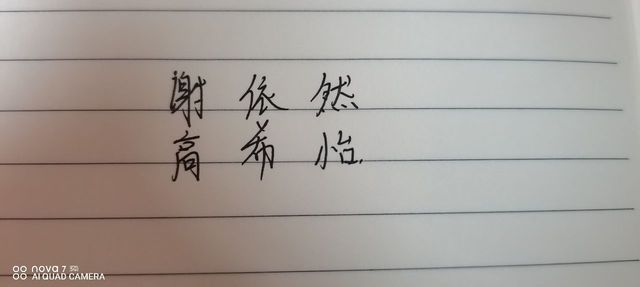 谢依然
高希怡.
nova 7 5G
AI QUAD CAMERA